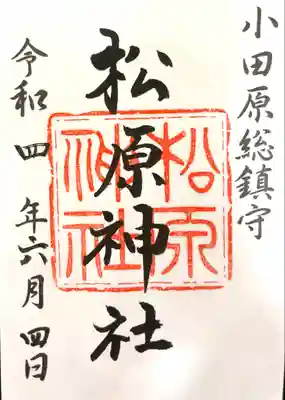 小田原総鎮守
松原神社
松原
神社
令和四年六月四日